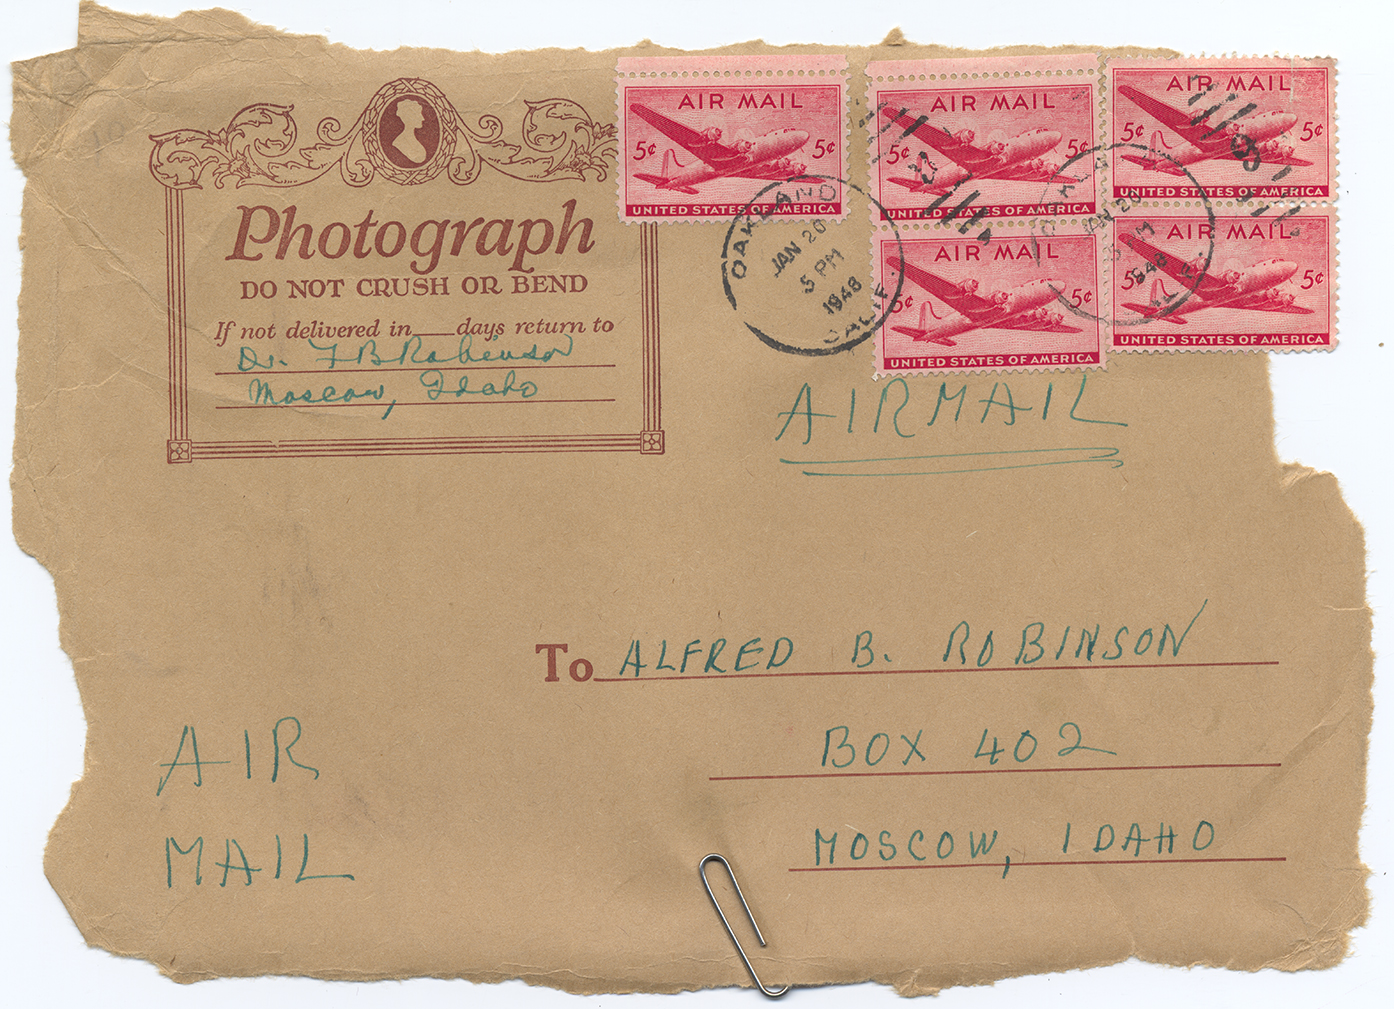 Photograph
DO NOT CRUSH OR BEND
If not delivered in___days return to
Dr. F B Robinson
Moscow, Idaho
AIR MAIL
5¢ 5¢
UNITED STATES OF AMERICA
AIR MAIL
5¢ 5¢
UNITED STATES OF AMERICA
AIR MAIL
5¢ 5¢
UNITED STATES OF AMERICA
AIR MAIL
5¢ 5¢
UNITED STATES OF AMERICA
AIR MAIL
5¢ 5¢
UNITED STATES OF AMERICA
OAKLAND
JAN 20
5 PM
1948
CALIF.
OAKLAND
JAN 20
5 PM
1948
AIRMAIL
To ALFRED B. ROBINSON
BOX 402
MOSCOW, IDAHO
AIR
MAIL